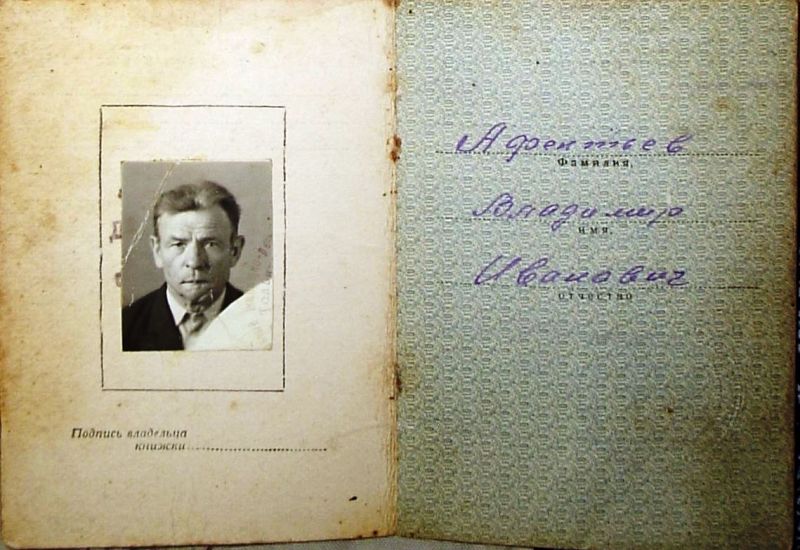 Подпись владельца
книжки
Афентьев
Фамилия,
Владимир
имя,
Иванович
отчество